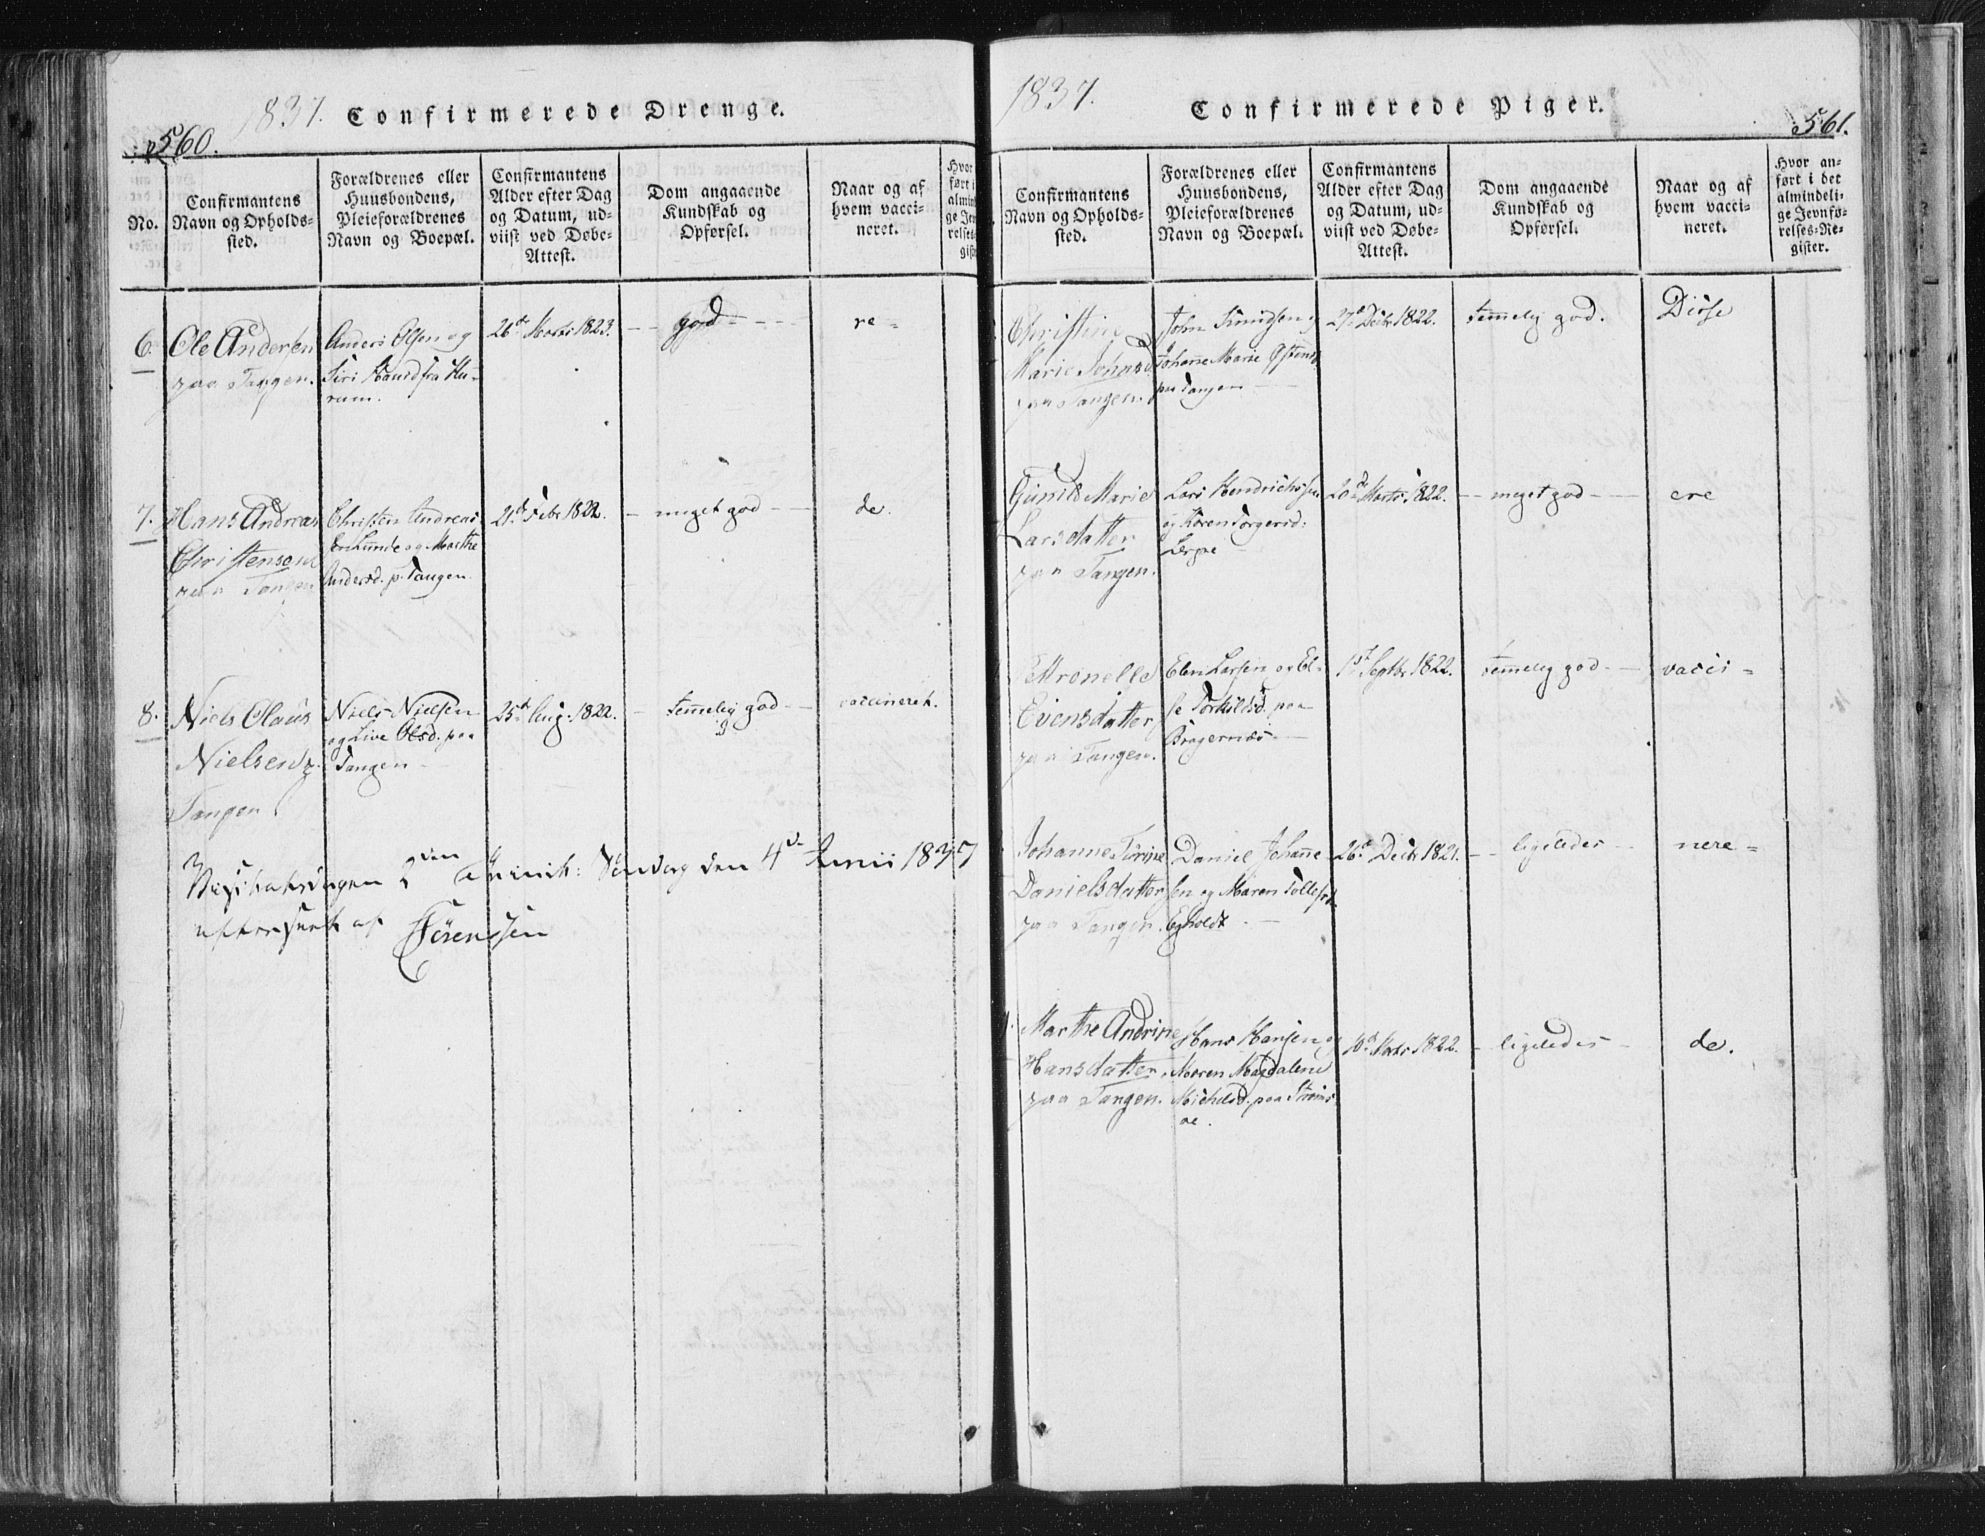 560.
1837. Confirmerede Drenge.
No.
Confirmantens
Navn og Opholds-
sted.
Forældrenes eller
Huusbondens,
Pleieforældrenes
Navn og Boepæl.
Confirmantens
Alder efter Dag
og Datum, ud-
viist ved Døbe-
Attest.
Dom angaaende
Kundskab og
Opførsel.
Naar og af
hvem vacci-
neret.
6.
Ole Andersen
paa Tangen.
Anders Olsen og
Siri fra Hu-
rum.
26de Marts 1823.
god
re-
7.
Hans Andreas
Christensen
paa Tangen
Christen Andreas-
og Marthe
Andersd. p. Tangen.
21de Febr 1822.
meget god
de.
8.
Niels Claus
Nielsen p.
Tangen
Niels Nielsen
og Live Olsd. paa
Tangen
25de Aug. 1822.
temmelig god
vaccineret.
den 4de Junii 1837
af Sörenssen
1837.
Confirmerede Piger.
561.
Confirmantens
Navn og Opholds-
sted.
Forældrenes eller
Huusbondens,
Pleieforældrenes
Navn og Boepæl.
Confirmantens
Alder efter Dag
og Datum, ud-
viist ved Døbe-
Attest.
Dom angaaende
Kundskab og
Opførsel.
Naar og af
hvem vacci-
neret.
Hvor an-
ført i det
almindeli-
ge Jevnfø-
relses-Re-
gister.
Christine
Marie Johnsd
paa Tangen.
John Simensen og
Johanne Marie
paa Tangen
27de Decbr 1822.
temmelig god.
Disse
Gunild Marie
Larsdatter
paa Tangen.
Lars Hendrichsen
og Karen Torgersd:
20de Marts 1822.
meget god
ere
Evensdatter
paa Tangen.
Even Larsen og El-
se Torkildsd. paa
Bragernæs
1ste Septbr 1822.
temmelig god
vacci-
Johanne
Danielsdatter
paa Tangen.
Daniel Johanne-
sen og Maren Tollefsd.
Egholdt
26de Decbr 1821.
ligeledes
nere-
Marthe Andrine
Hansdatter
paa Tangen.
Hans Hansen og
Maren Magdalene
Michelsd. paa Strøms-
øe.
10de Marts 1822.
ligeledes
de.